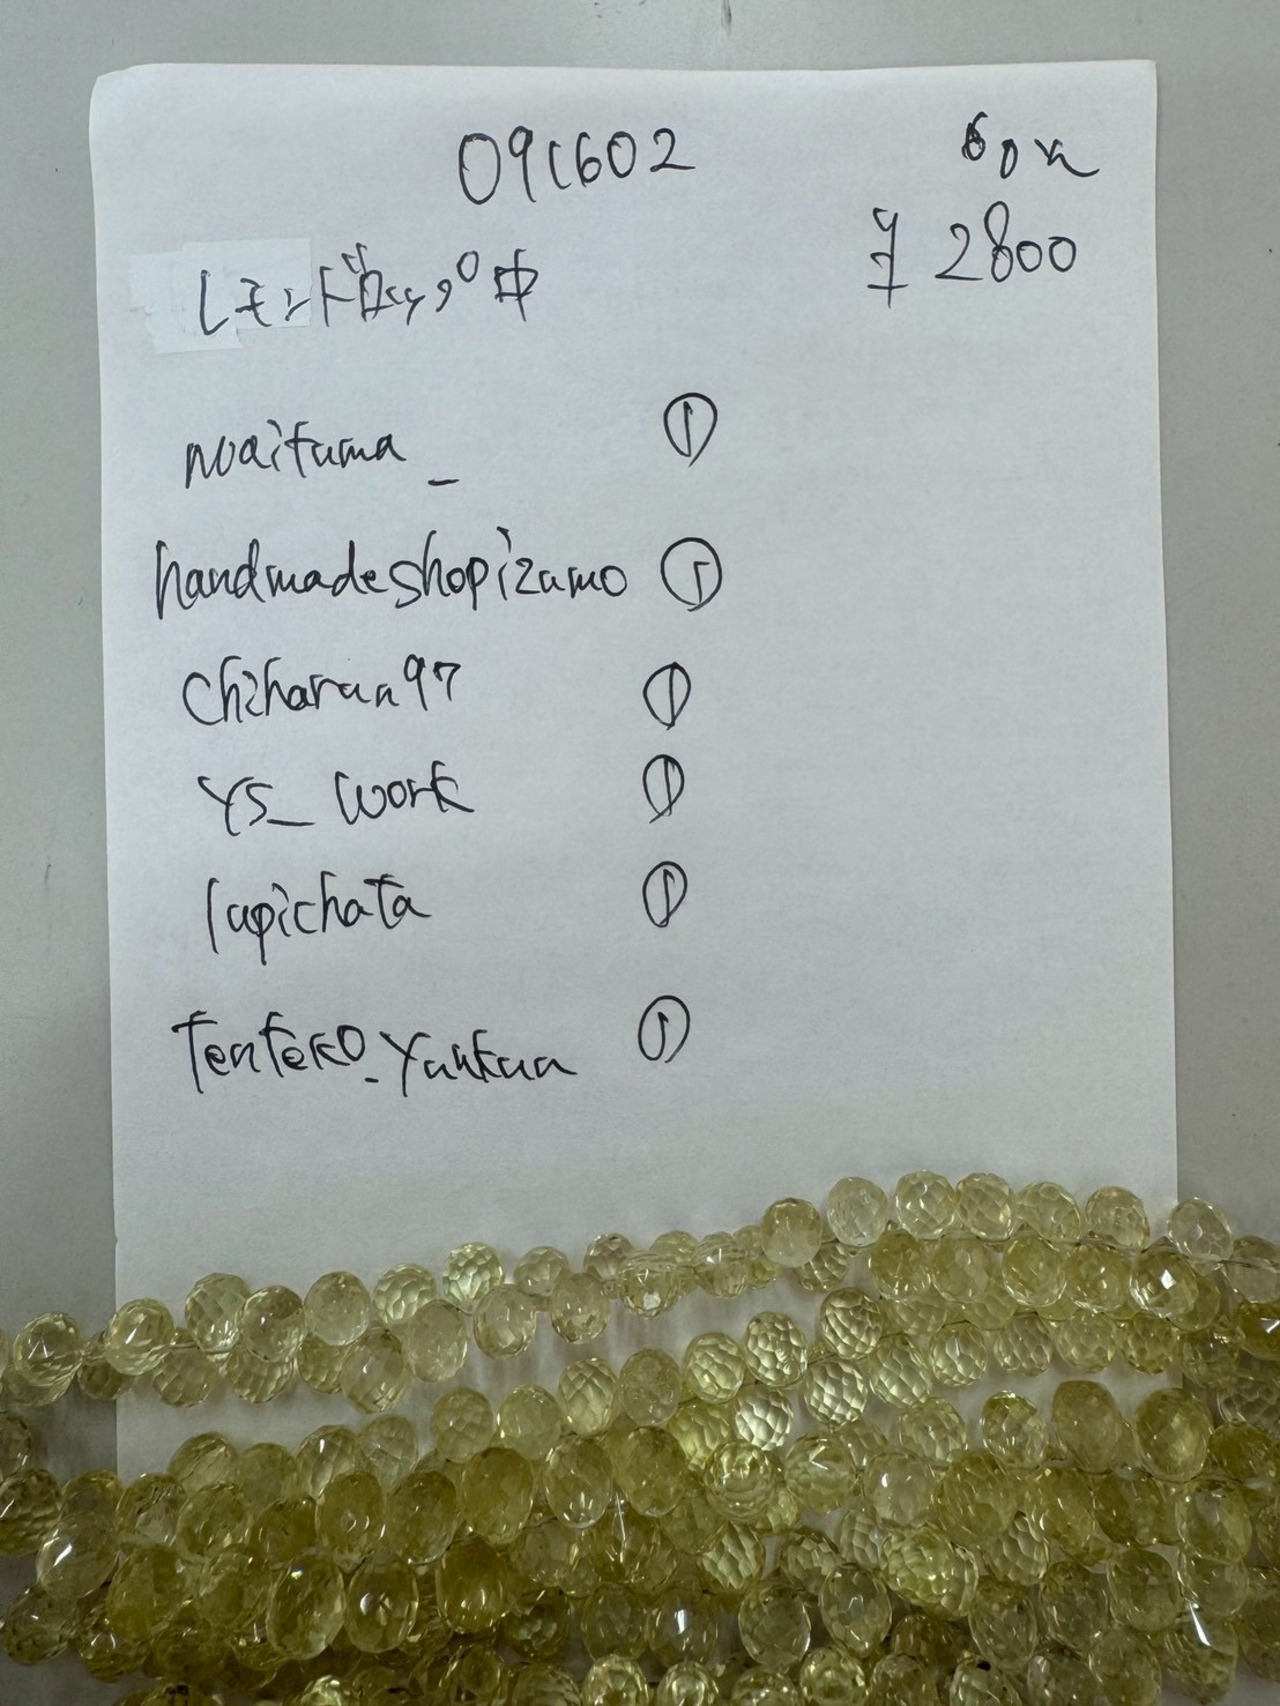 091602
60n
レモンドロップ中
¥2800
noaifuma_ ①
handmadeshopizumo ①
chiharun97 ①
YS_work ①
lapichata ①
Tenteko_Yunkun ①